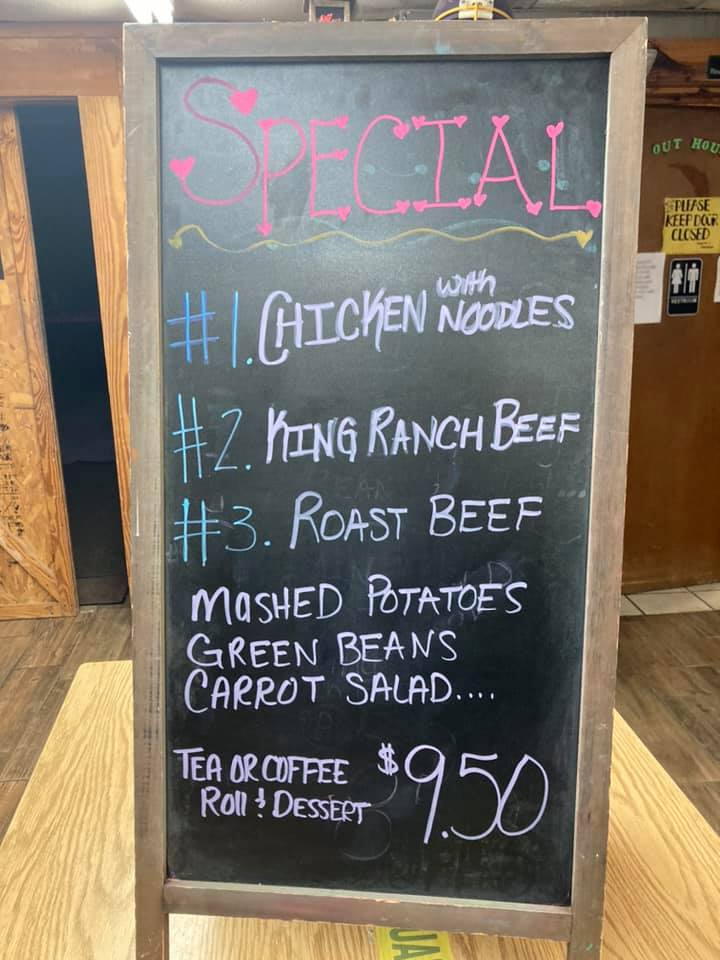 SPECIAL
#1. CHICKEN with NOODLES
#2. KING RANCH BEEF
#3. ROAST BEEF
MaSHED POTATOES
GREEN BEANS
CARROT SALAD....
TEA OR COFFEE $9.50
Roll & DESSERT
OUT HOU
PLEASE
KEEP DOOR
CLOSED
RESTROOM
JA